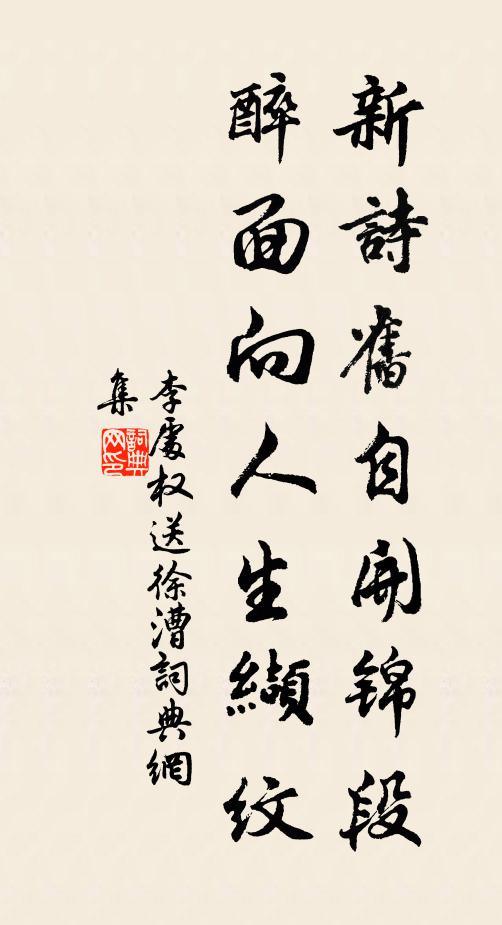 新詩舊自開錦段
醉面向人生纈紋
李處权送徐漕詞典網
集
詞典
网印